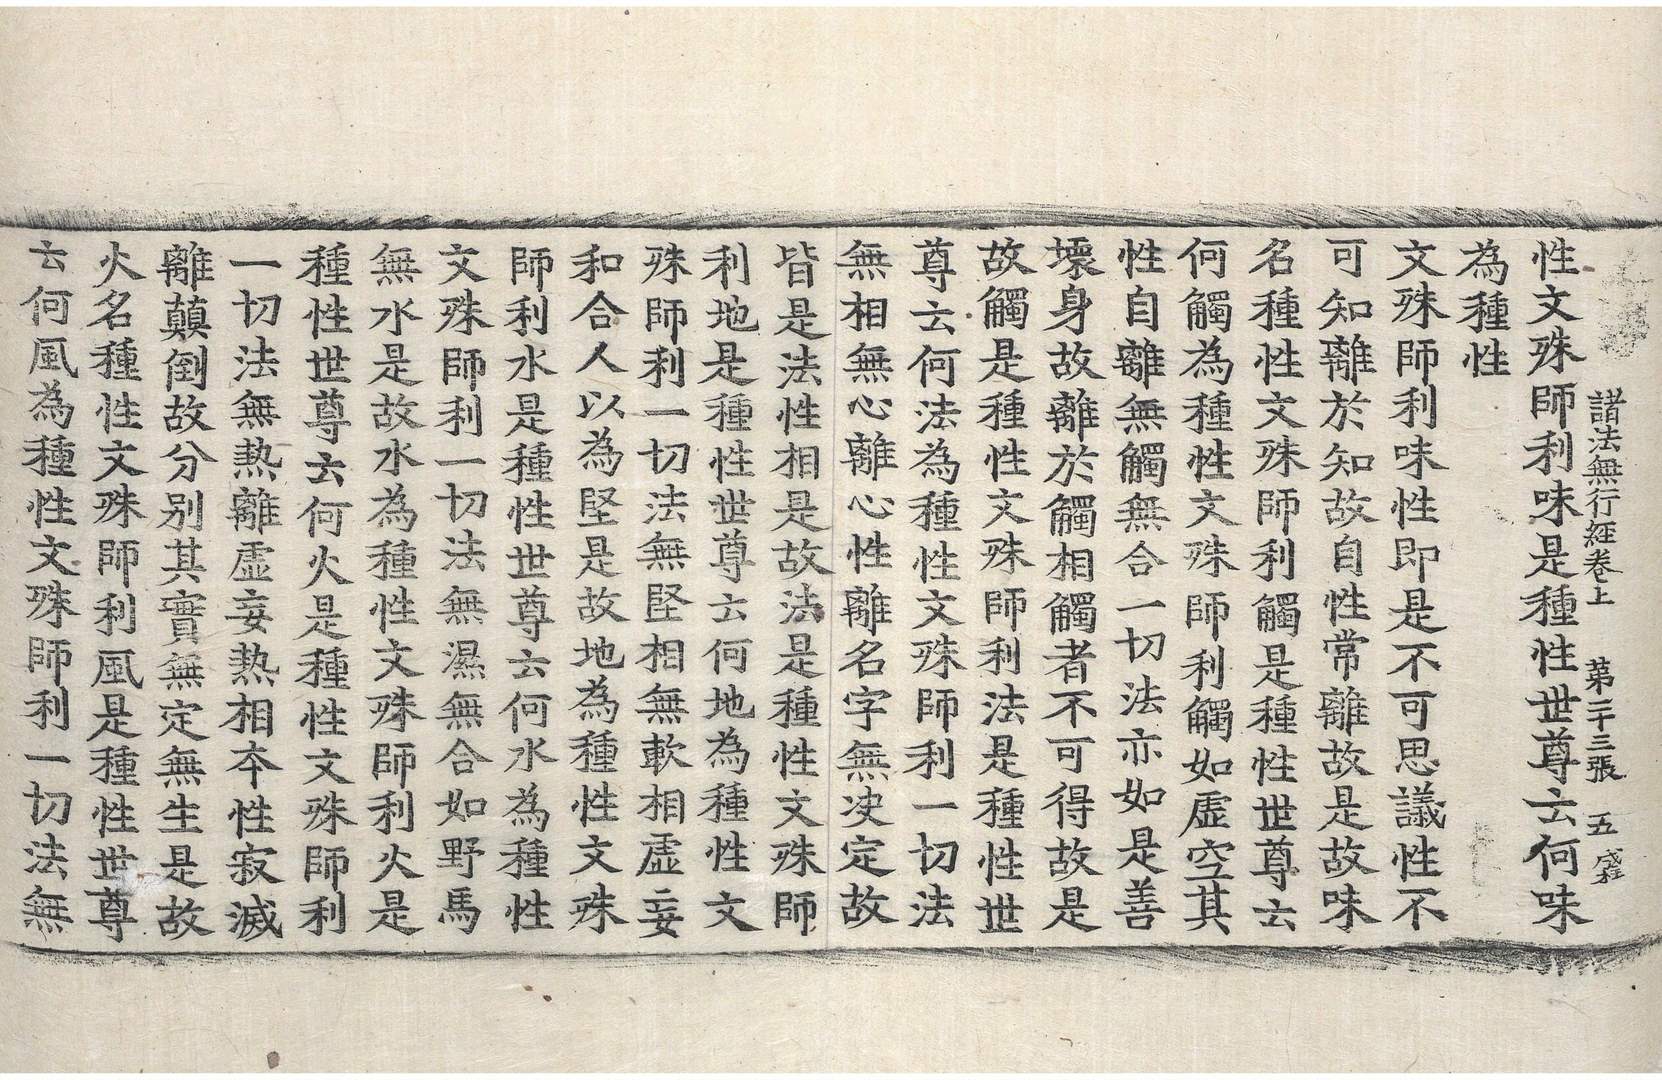 諸法無行經卷上　第二十三張　五　盛
性文殊師利味是種性世尊云何味
為種性
文殊師利味性即是不可思議性不
可知離於知故自性常離故是故味
名種性文殊師利觸是種性世尊云
何觸為種性文殊師利觸如虛空其
性自離無觸無合一切法亦如是善
壞身故離於觸相觸者不可得故是
故觸是種性文殊師利法是種性世
尊云何法為種性文殊師利一切法
無相無心離心性離名字無决定故
皆是法性相是故法是種性文殊師
利地是種性世尊云何地為種性文
殊師利一切法無堅相無軟相虛妄
和合人以為堅是故地為種性文殊
師利水是種性世尊云何水為種性
文殊師利一切法無濕無合如野馬
無水是故水為種性文殊師利火是
種性世尊云何火是種性文殊師利
一切法無熱離虛妄熱相夲性寂滅
離顛倒故分別其實無定無生是故
火名種性文殊師利風是種性世尊
云何風為種性文殊師利一切法無